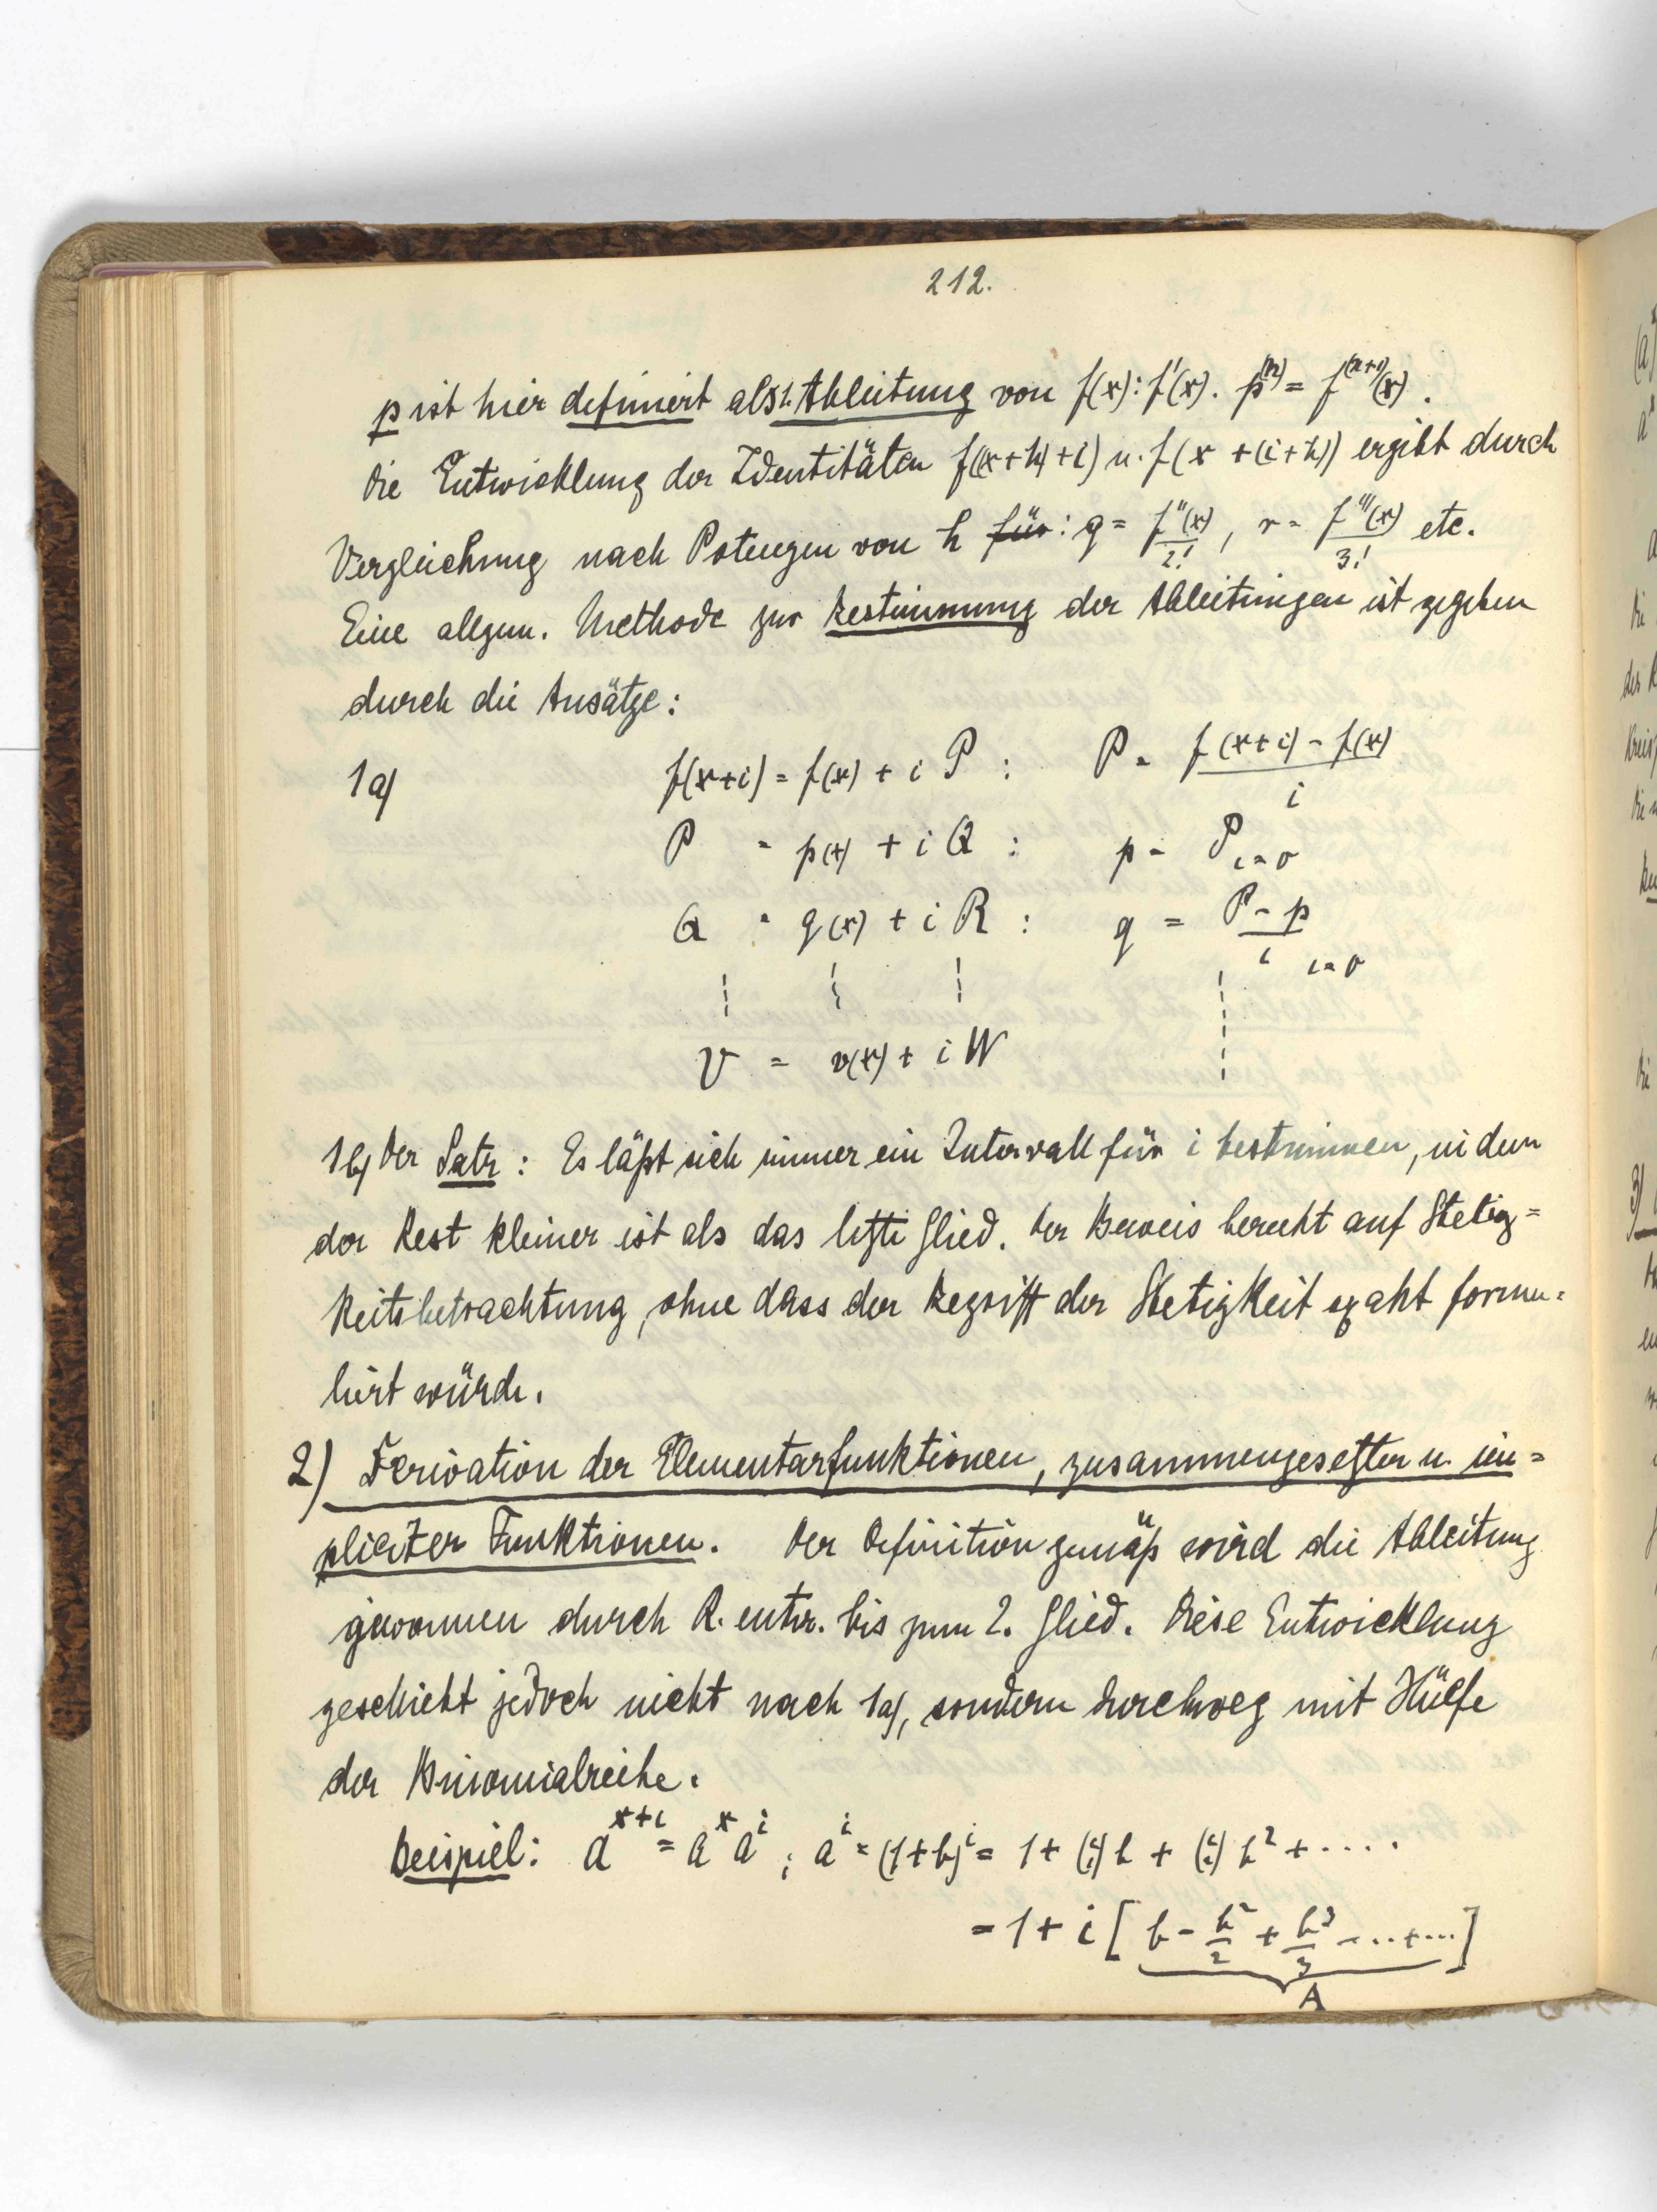 212.
p ist hier definiert als 1. Ableitung von f(x): f'(x). p^(n) = f^(n+1)(x).
Die Entwicklung der Identitäten f((x+h)+i) u. f(x+(i+h)) ergibt durch
Vergleichung nach Potenzen von h für: q = f''(x)/2!, r = f'''(x)/3! etc.
Eine allgem. Methode zur Bestimmung der Ableitungen ist gegeben
durch die Ansätze:
1a) f(x+i) = f(x) + i P : P = (f(x+i) - f(x))/i
P = p(x) + i Q : p = P i=0
Q = q(x) + i R : q = (P - p)/i i=0
V = v(x) + i W
1b) Der Satz: Es läßt sich immer ein Intervall für i bestimmen, in dem
der Rest kleiner ist als das letzte Glied. Der Beweis beruht auf Stetig=
keitsbetrachtung, ohne dass der Begriff der Stetigkeit exakt formu=
liert würde.
2) Derivation der Elementarfunktionen, zusammengesetzter u. im=
pliciter Funktionen. Der Definition gemäß wird die Ableitung
gewonnen durch R. entw. bis zum 2. Glied. Diese Entwicklung
geschieht jedoch nicht nach 1a), sondern durchweg mit Hülfe
der Binomialreihe.
Beispiel: a^(x+i) = a^x a^i ; a^i = (1+b)^i = 1 + (i 1) b + (i 2) b² + ....
= 1 + i [ b - b²/2 + b³/3 - ..+... ]
A